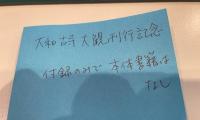 大和古寺大観刊行記念
付録のみで本体書籍は
なし